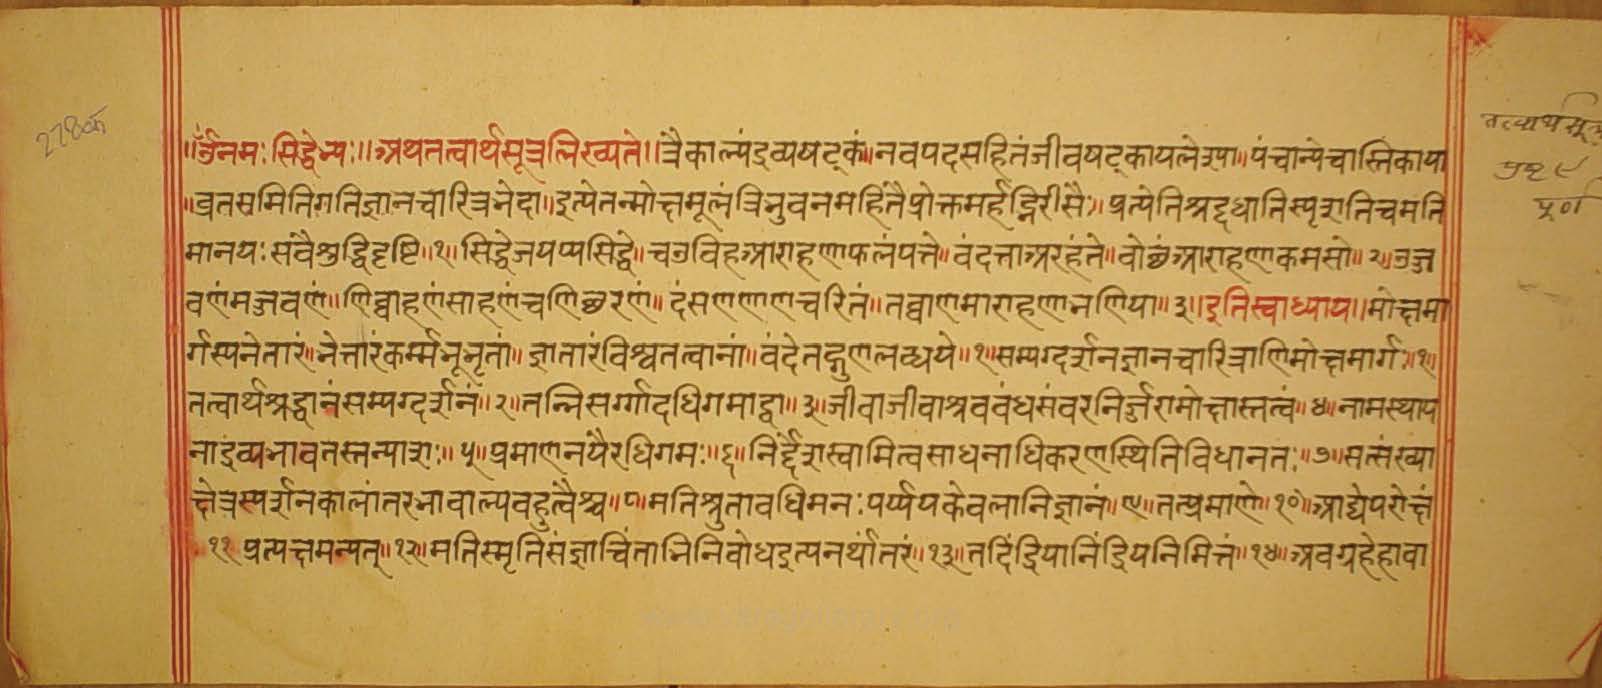 २७८क
तत्वार्थसूत्र
॥ॐनमःसिद्धेभ्यः॥अथतत्वार्थसूत्रलिख्यते॥त्रैकाल्यंद्रव्यषट्कं॥नवपदसहितंजीवषट्कायलेश्या॥पंचान्येचास्तिकाया
॥व्रतसमितिगतिज्ञानचारित्रभेदा॥इत्येतन्मोक्षमूलंत्रिभुवनमहितैप्रोक्तमर्हद्भिरीसैः॥प्रत्येतिश्रद्दधातिस्पृशतिचमति
मानयःसवैशुद्धिदृष्टि॥१॥सिद्धेजयप्पसिद्धे॥चउविहआराहणाफलंपत्ते॥वंदत्ताअरहंते॥वोछंआराहणाकमसो॥२॥उज्ज
वणंमज्जवणं॥णिव्वाहणंसाहणंचणिछरणं॥दंसणणाणचरितं॥तव्वाणमाराहणाभणिया॥३॥इतिस्वाध्याय॥मोक्षमा
र्गस्यनेतारं॥भेत्तारंकर्म्मभूभृतां॥ज्ञातारंविश्वतत्वानां॥वंदेतद्गुणलब्धये॥१॥सम्यग्दर्शनज्ञानचारित्राणिमोक्षमार्गः॥१॥
तत्वार्थश्रद्धानंसम्यग्दर्शनं॥२॥तन्निसर्ग्गादधिगमाद्वा॥३॥जीवाजीवाश्रवबंधसंवरनिर्ज्जरामोक्षास्तत्वं॥४॥नामस्थाप
नाद्रव्यभावतस्तन्यासः॥५॥प्रमाणनयैरधिगमः॥६॥निर्द्देशस्वामित्वसाधनाधिकरणस्थितिविधानतः॥७॥सत्संख्या
क्षेत्रस्पर्शनकालांतरभावाल्पबहुत्वैश्च॥८॥मतिश्रुतावधिमनःपर्य्ययकेवलानिज्ञानं॥९॥तत्प्रमाणे॥१०॥आद्येपरोक्षं
११प्रत्यक्षमन्यत्॥१२॥मतिस्मृतिसंज्ञाचिंताभिनिबोधइत्यनर्थांतरं॥१३॥तदिंद्रियानिंद्रियनिमित्तं॥१४॥अवग्रहेहावा